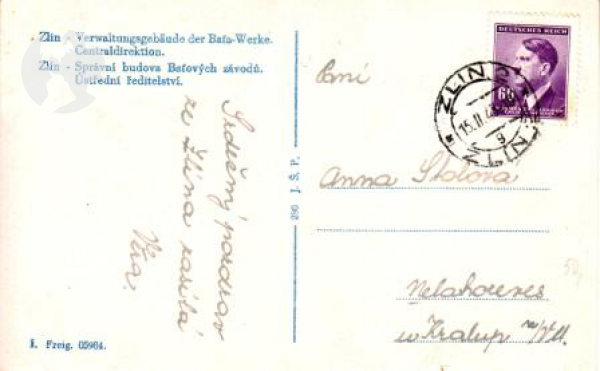 Zlín - Verwaltungsgebäude der Baťa-Werke.
Centraldirektion.
Zlín - Správní budova Baťových závodů.
Ústřední ředitelství.
Srdečný pozdrav
ze Zlína zasílá
Věra.
I. Freig. 05964.
J. Š. P.
DEUTSCHES REICH
60
ZLIN
15. II. 4
g
Paní
Anna
Nelahozeves
u Kralup n/Vlt.